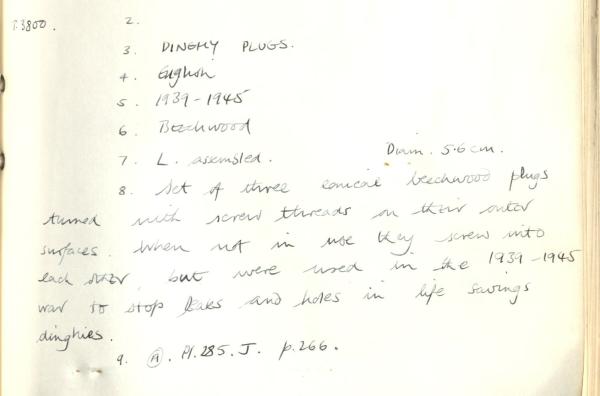 T.3800. 2.
3. DINGHY PLUGS.
4. English
5. 1939-1945
6. Beechwood
7. L. assembled. Diam. 5.6 cm.
8. Set of three conical beechwood plugs
turned with screw threads on their outer
surfaces. When not in use they screw into
each other, but were used in the 1939-1945
war to stop leaks and holes in life savings
dinghies.
9. (A). Pl. 285. J. p. 266.